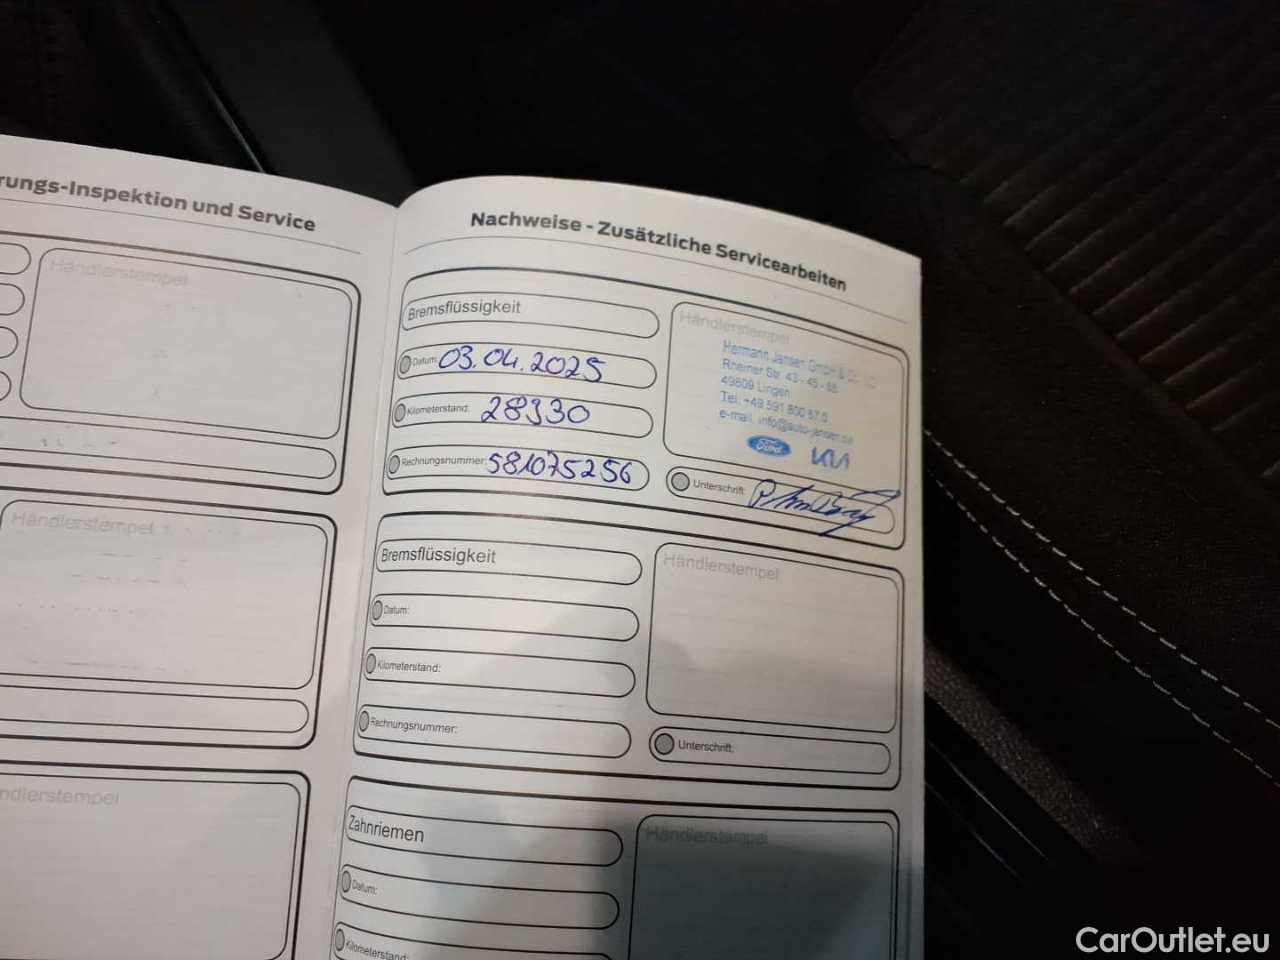 rungs-Inspektion und Service
Händlerstempel
Händlerstempel
ndlerstempel
Nachweise - Zusätzliche Servicearbeiten
Bremsflüssigkeit
Datum: 03.04.2025
Kilometerstand: 28330
Rechnungsnummer: 581075256
Händlerstempel
Hermann Jansen GmbH & Co. KG
Rheiner Str. 43 - 45 -
49809 Lingen
Tel. +49 591 800 57 0
e-mail. info@auto-jansen.de
Ford KIA
Unterschrift:
Bremsflüssigkeit
Datum:
Kilometerstand:
Rechnungsnummer:
Händlerstempel
Unterschrift:
Zahnriemen
Datum:
Kilometerstand:
Händlerstempel
CarOutlet.eu